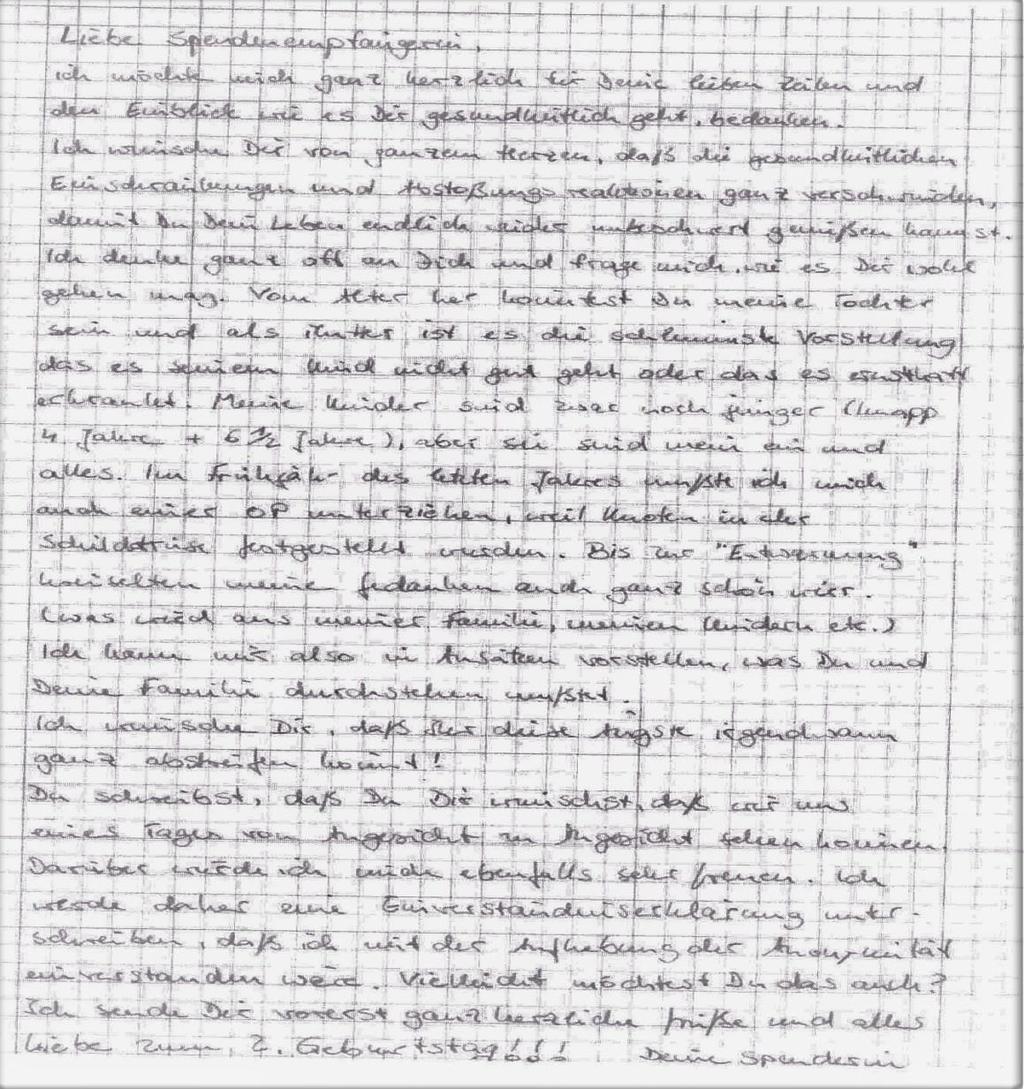 Liebe Spendenempfängerin,
ich möchte mich ganz herzlich für Deine lieben Zeilen und
den Einblick wie es Dir gesundheitlich geht, bedanken.
Ich wünsche Dir von ganzem Herzen, daß die gesundheitlichen
Einschränkungen und Abstoßungsreaktionen ganz verschwinden,
damit Du Dein Leben endlich wieder unbeschwert genießen kannst.
Ich denke ganz oft an Dich und frage mich, wie es Dir wohl
gehen mag. Vom Alter her könntest Du meine Tochter
sein und als Mutter ist es die schlimmste Vorstellung
das es seinem Kind nicht gut geht oder das es ernsthaft
erkrankt. Meine Kinder sind zwar noch jünger (knapp
4 Jahre + 6 1/2 Jahre), aber sie sind mein ein und
alles. Im Frühjahr des letzten Jahres mußte ich mich
auch einer OP unterziehen, weil Knoten in der
Schilddrüse festgestellt wurden. Bis zur "Entwarnung"
kreiselten meine Gedanken auch ganz schön wirr.
(was wird aus meiner Familie, meinen Kindern etc.)
Ich kann mir also in Ansätzen vorstellen, was Du und
Deine Familie durchstehen mußtet.
Ich wünsche Dir, daß Ihr diese Ängste irgendwann
ganz abstreifen könnt!
Du schreibst, daß Du Dir wünschst, daß wir uns
eines Tages von Angesicht zu Angesicht sehen können.
Darüber würde ich mich ebenfalls sehr freuen. Ich
werde daher eine Einverständniserklärung unter-
schreiben, daß ich mit der Aufhebung der Anonymität
einverstanden wäre. Vielleicht möchtest Du das auch?
Ich sende Dir vorerst ganz herzliche Grüße und alles
Liebe zum 2. Geburtstag!!! Deine Spenderin